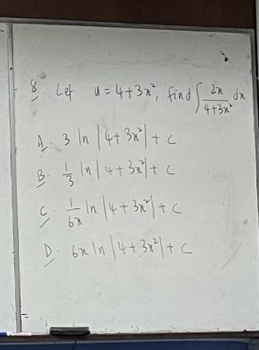 8. Let u = 4+3x², find ∫ 2x/(4+3x²) dx
A. 3 ln |4+3x²| + c
B. 1/3 ln |4+3x²| + c
C. 1/6x ln |4+3x²| + c
D. 6x ln |4+3x²| + c